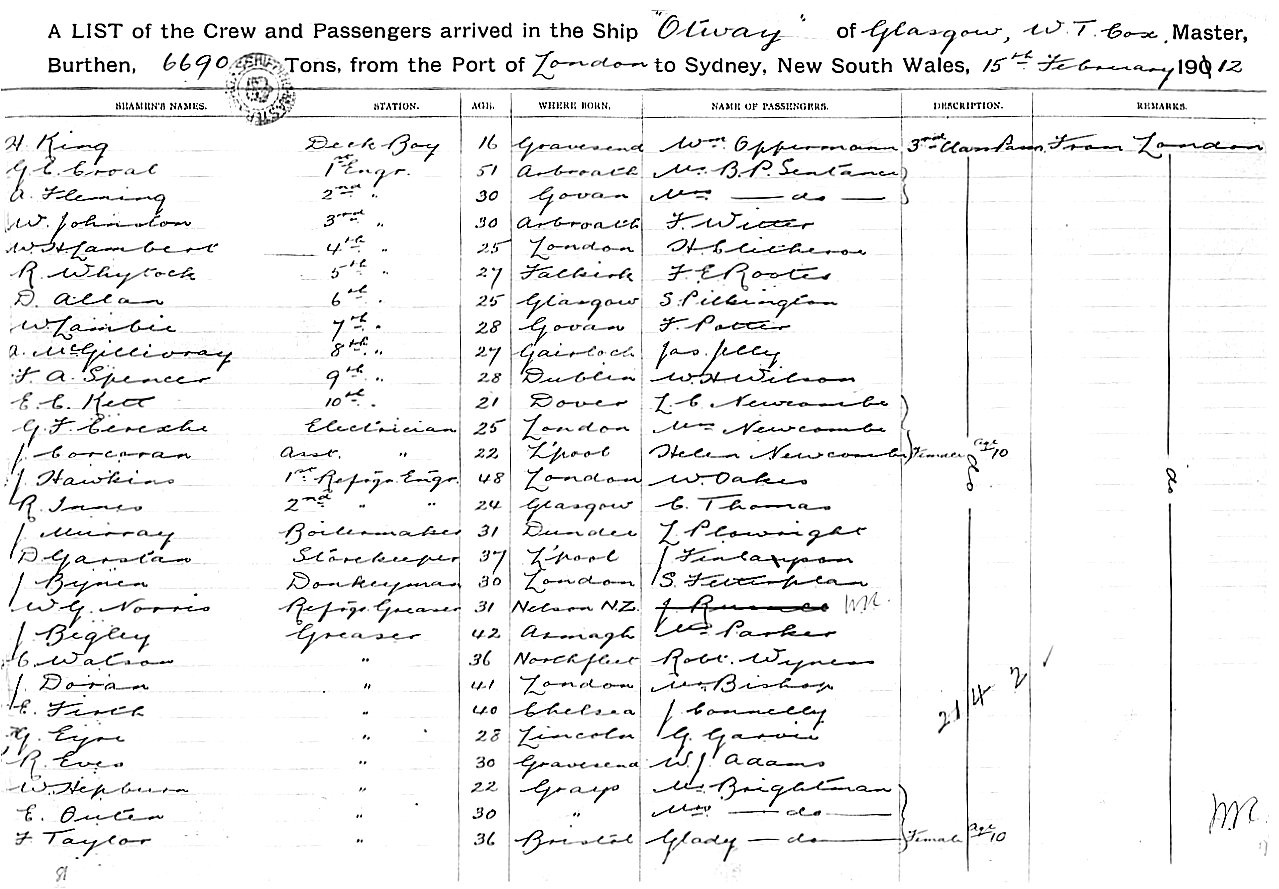 A LIST of the Crew and Passengers arrived in the Ship "Otway" of Glasgow, W. T. Cox, Master,
Burthen, 6690 Tons, from the Port of London to Sydney, New South Wales, 15th February 1912
SEAMEN'S NAMES. STATION. AGE. WHERE BORN. NAME OF PASSENGERS. DESCRIPTION. REMARKS.
H King Deck Boy 16 Gravesend Wm Oppermann 3rd Class Pass. From London
G. E. Croal 1st Engr. 51 Arbroath Mr B. P. Sentance
A. Fleming 2nd " 30 Govan Mrs — do —
W. Johnston 3rd " 30 Arbroath F. Witter
W. H Lambert 4th " 25 London H Clitheroe
R. Whytock 5th " 27 Falkirk F. E Rootes
D. Allan 6th " 25 Glasgow S. Pilkington
W. Lambie 7th " 28 Govan F. Potter
A. McGillivray 8th " 27 Gairloch Jas. Jelly
F. A. Spencer 9th " 28 Dublin W. H Wilson
E. C. Kett 10th " 21 Dover L. C. Newcombe
G. F. Electrician 25 London Mrs Newcombe
J. Corcoran Asst. " 22 L'pool Helen Newcombe Female age 10
J. Hawkins 1st Refrigr. Engr. 48 London W. Oakes do do
R. Innes 2nd " " 24 Glasgow C. Thomas
J. Murray Boilermaker 31 Dundee L. Plowright
D Garstan Storekeeper 37 L'pool J Finlayson
J Donkeyman 30 London S.
W. G. Norris Refrigr. Greaser 31 Nelson N.Z. J
J Begley Greaser 42 Armagh Mr Parker
C Watson " 36 Northfleet Robt. Wyness
J. Doran " 41 London Mr Bishop
E. Firth " 40 Chelsea J Connelly
G. Eyre " 28 Lincoln G. Garvie
R. Eves " 30 Gravesend W. J Adams
W. Hepburn " 22 Grays Mr Brightman
E. Outen " 30 " Mrs — do —
F Taylor " 36 Bristol Glady — do — Female age 10
214 2